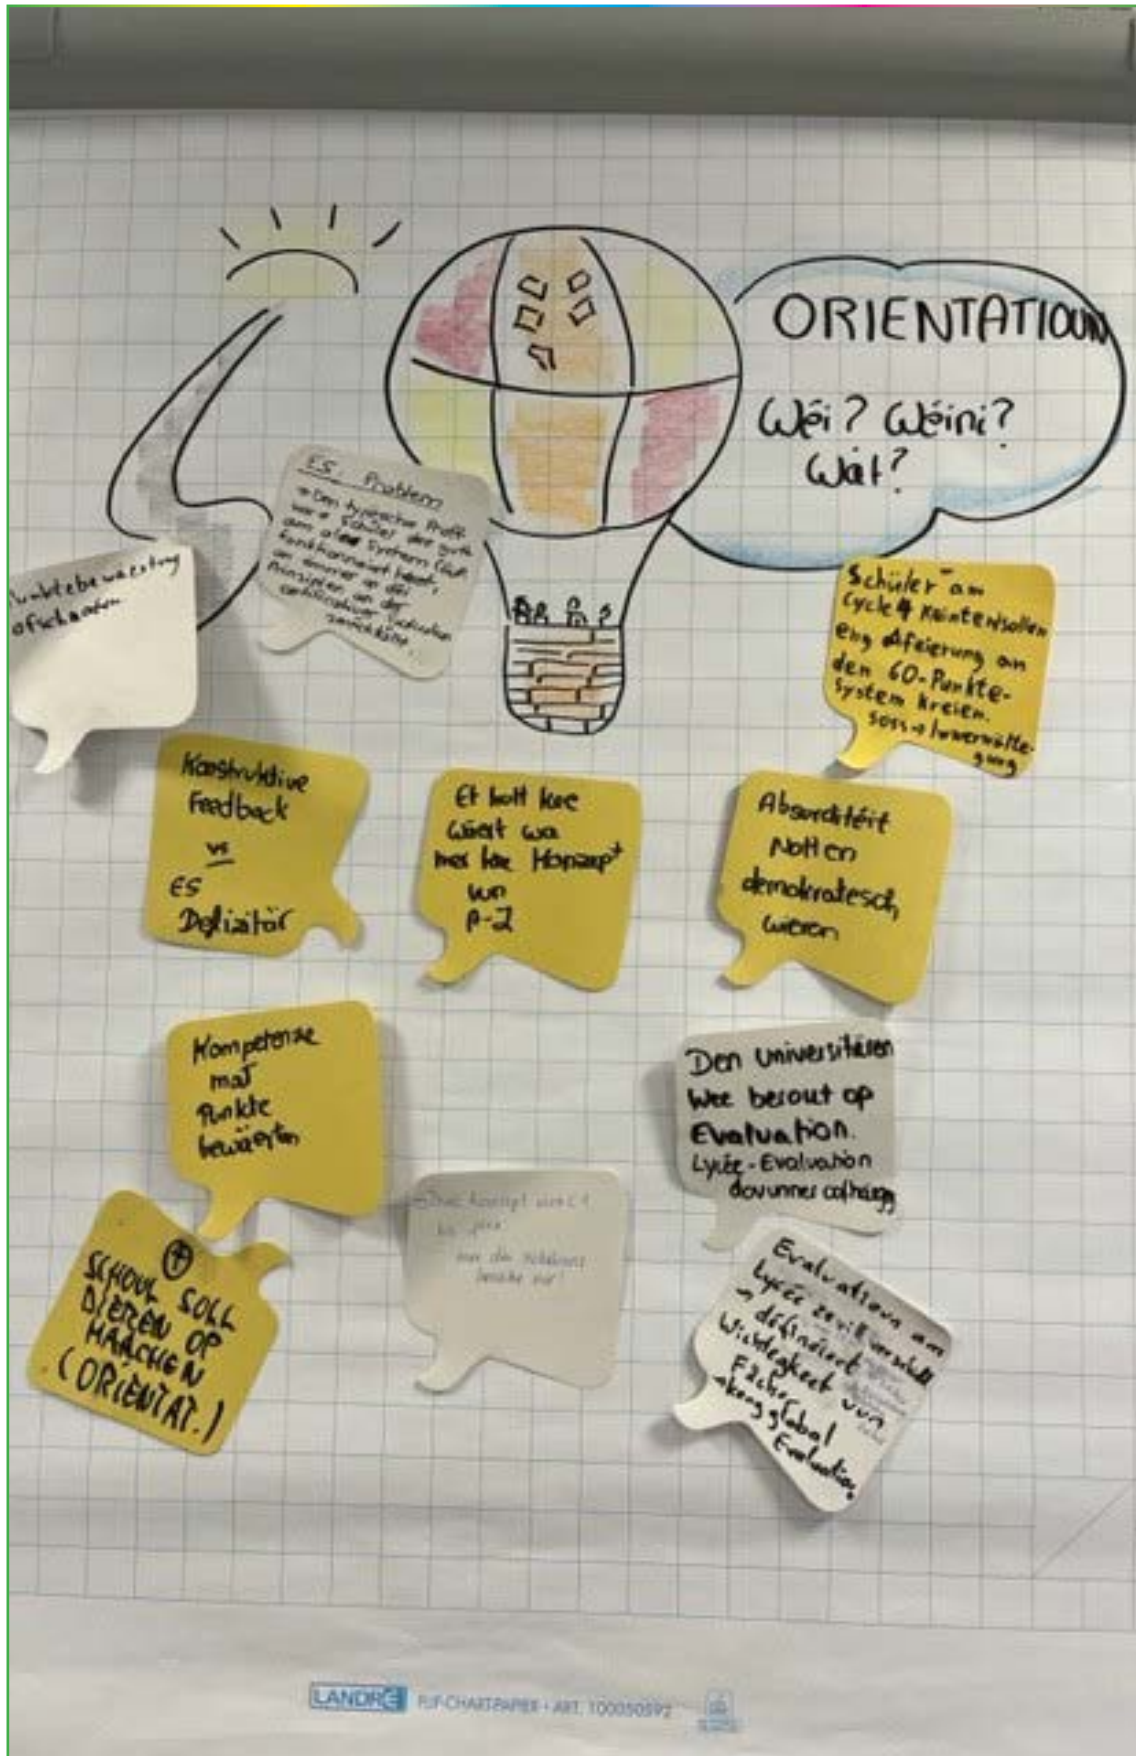 ORIENTATIOUN
Wéi? Wéini?
Wat?
ES. Problem
Den typesche Proff
war e Schüler der gutt
am System
funktionnéiert
ëmmer op déi
Prinzipien an der
Schüler am
Cycle 4 kéinten/sollen
eng Afféierung an
den 60-Punkte-
System kréien.
soss → Iwwerwälte-
gung
Konstruktive
Feedback
vs
ES
Defizitär
Et huet kee
Wäert wa
mer kee Konzept
vun
A-Z
Absurditéit
Notten
demokratesch
wieren
Kompetenze
mat
Punkte
bewäerten
Den universitären
Wee berout op
Evaluation.
Lycée-Evaluation
dovunner ofhängeg
+
SCHOUL SOLL
DIEREN OP
MAACHEN
(ORIENTAT.)
Evaluatioun am
Lycée
→ definéiert
Wichtegkeet vun
Fächer
→ keng global
Evaluatioun
LANDRÉ FLIP-CHARTPAPIER • ART. 100050592